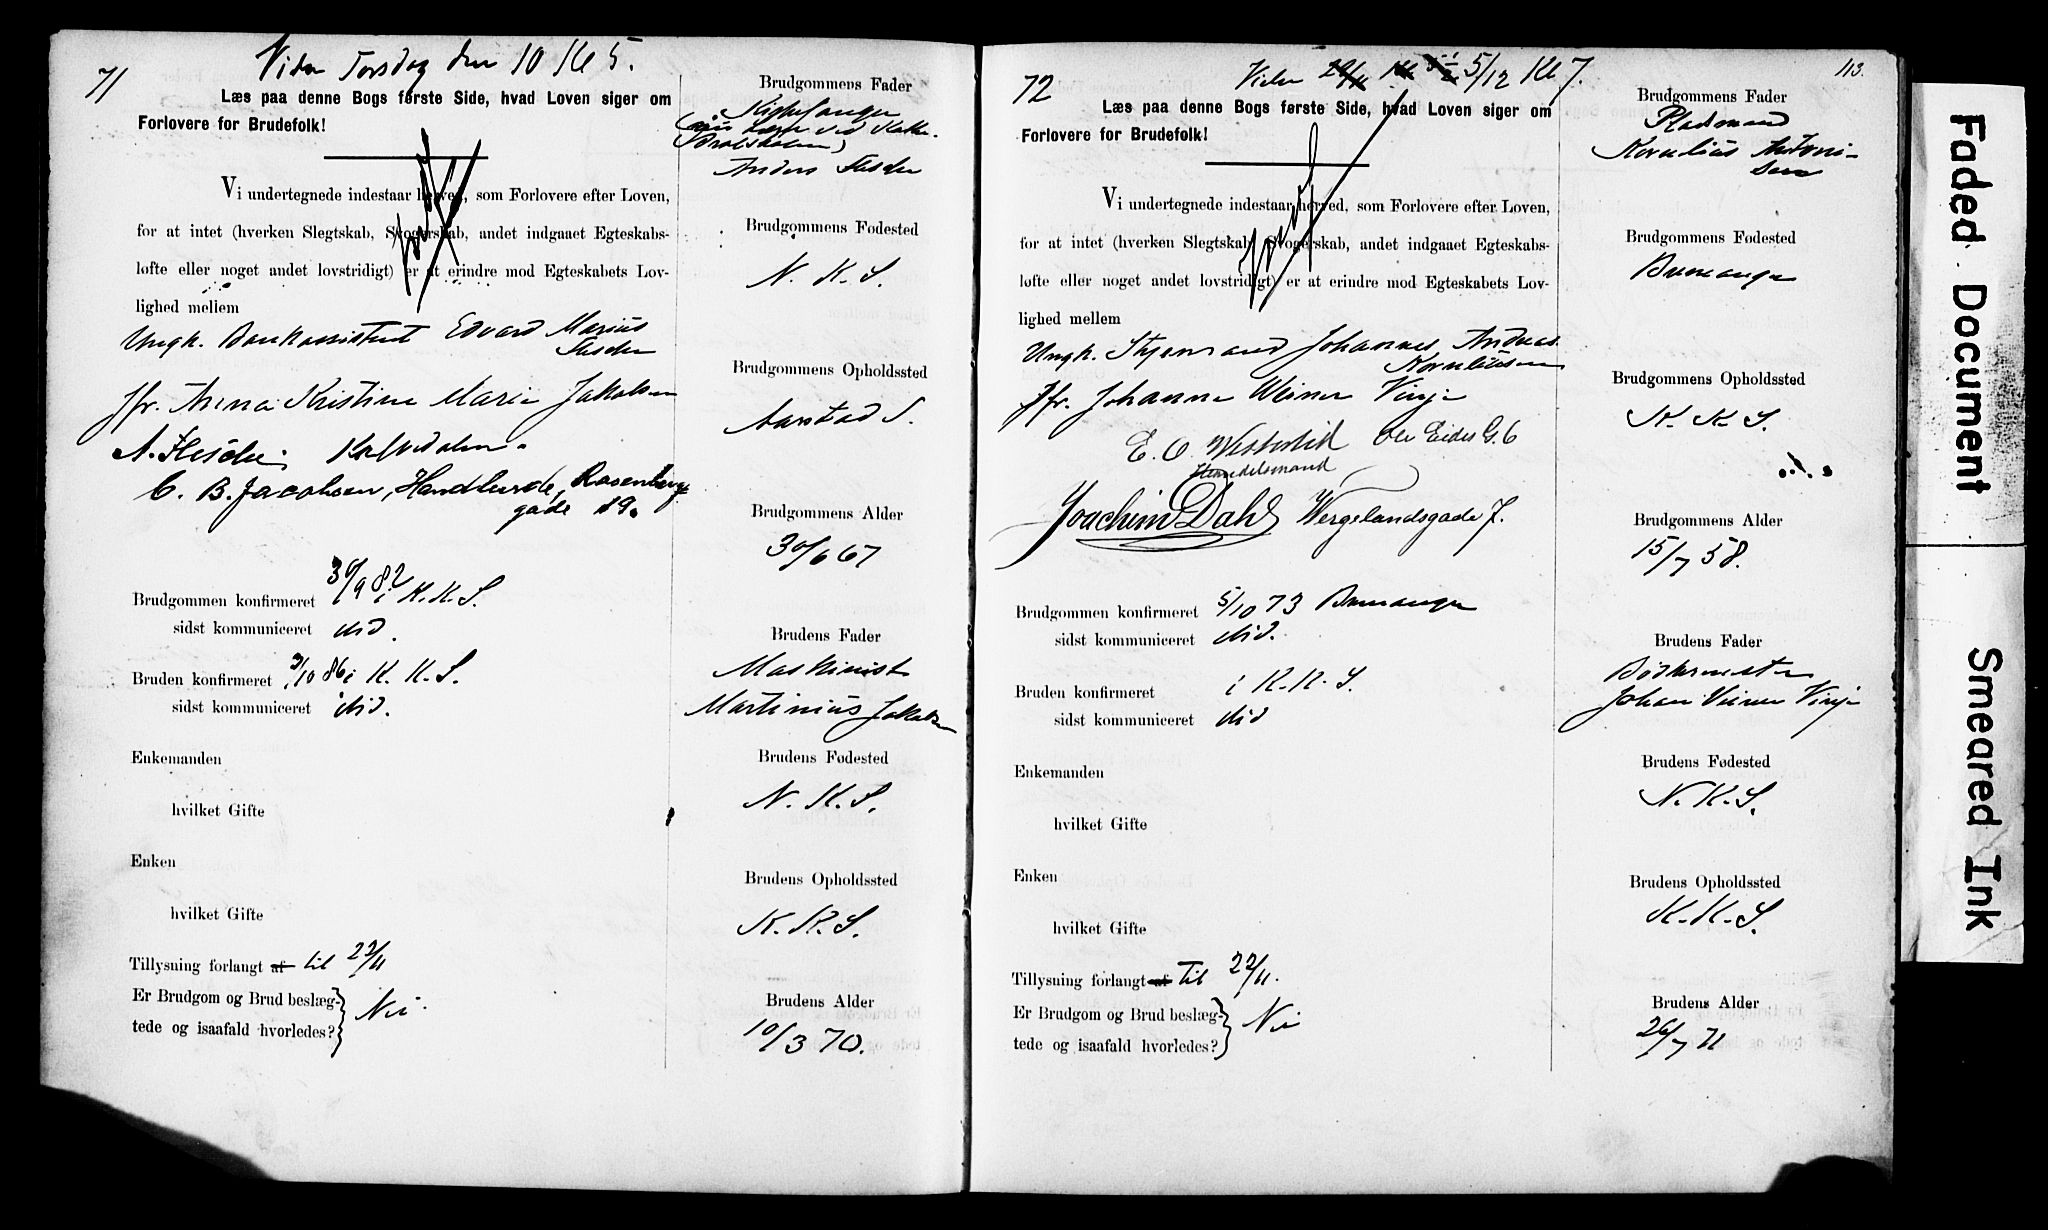 71
Vies Torsdag den 10 Kl 5.
Læs paa denne Bogs første Side, hvad Loven siger om
Forlovere for Brudefolk!
Vi undertegnede indestaar herved, som Forlovere efter Loven,
for at intet (hverken Slegtskab, Svogerskab, andet indgaaet Egteskabs-
løfte eller noget andet lovstridigt) er at erindre mod Egteskabets Lov-
lighed mellem
Ungk. Bankassistent Edvard Marius
Flesche
Jfr. Anna Kristine Marie Jakobsen
A. Flesche Kalvedalen.
C. B. Jacobsen, Handlende, Rosenberg-
gade 19.
Brudgommen konfirmeret 30/9 82 i K. K. S.
sidst kommuniceret did.
Bruden konfirmeret 3/10 86 i K. K. S.
sidst kommuniceret did.
Enkemanden
hvilket Gifte
Enken
hvilket Gifte
Tillysning forlangt af til 22/11
Er Brudgom og Brud beslæg-
tede og isaafald hvorledes? Nei
Brudgommens Fader
Anders Flesche
Brudgommens Fødested
N. K. S.
Brudgommens Opholdssted
Aarstad S.
Brudgommens Alder
30/6 67
Brudens Fader
Maskinist
Martinius Jakobsen
Brudens Fødested
N. K. S.
Brudens Opholdssted
K. K. S.
Brudens Alder
10/3 70.
72
Vies 5/12 Kl 7.
113.
Læs paa denne Bogs første Side, hvad Loven siger om
Forlovere for Brudefolk!
Vi undertegnede indestaar herved, som Forlovere efter Loven,
for at intet (hverken Slegtskab, Svogerskab, andet indgaaet Egteskabs-
løfte eller noget andet lovstridigt) er at erindre mod Egteskabets Lov-
lighed mellem
Ungk. Styrmand Johannes Andreas
Korneliussen
Jfr. Johanne Weiner Vinje
E. O. Westerlid Ole Eides G. 6
Handelsmand
Joachim Dahl Wergelandsgade 7.
Brudgommen konfirmeret 5/10 73 Bremanger
sidst kommuniceret did.
Bruden konfirmeret i K. K. S.
sidst kommuniceret did
Enkemanden
hvilket Gifte
Enken
hvilket Gifte
Tillysning forlangt af til 22/11.
Er Brudgom og Brud beslæg-
tede og isaafald hvorledes? Nei
Brudgommens Fader
Pladsmand
Kornelius Antoni-
sen
Brudgommens Fødested
Bremanger
Brudgommens Opholdssted
K. K. S.
Brudgommens Alder
15/7 58.
Brudens Fader
Bødkermester
Johan Weiner Vinje
Brudens Fødested
N. K. S.
Brudens Opholdssted
K. K. S.
Brudens Alder
26/7 71
Faded Document
Smeared Ink